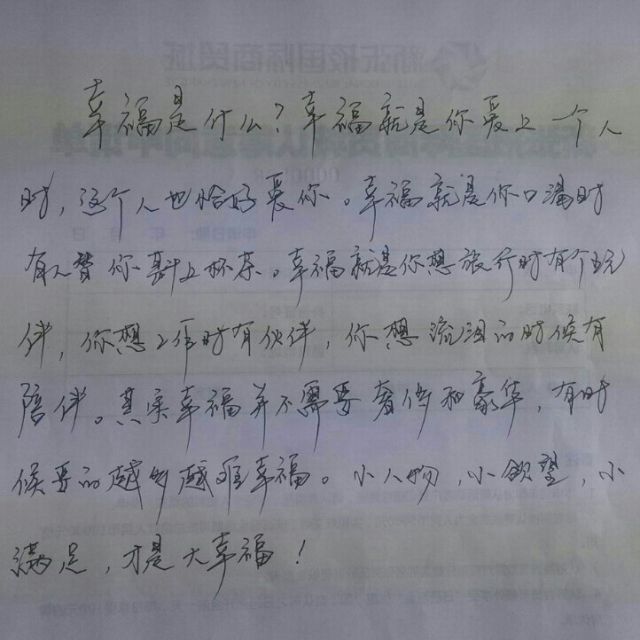 幸福是什么？幸福就是你爱上一个人
时，这个人也恰好爱你。幸福就是你口渴时
有人替你斟上杯茶。幸福就是你想旅行时有个玩
伴，你想工作时有伙伴，你想流泪的时候有
陪伴。其实幸福并不需要奢侈和豪华，有时
候要的越多越难幸福。小人物，小欲望，小
满足，才是大幸福！